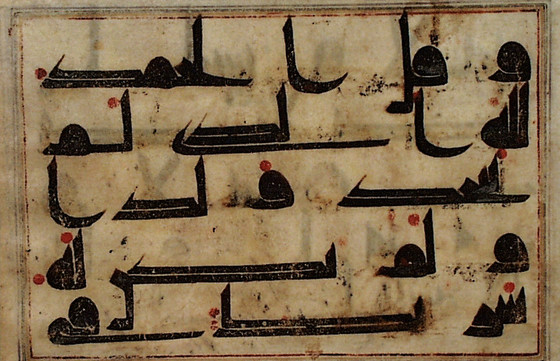 و قل الحمد
لله الذى لم
يتخذ و لدا
و لم يكن له
شر يك فى